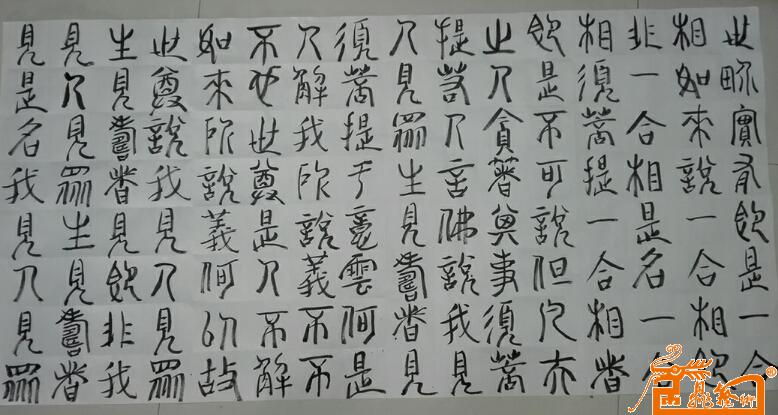 世界實有即是一合
相如來說一合相即
非一合相是名一合
相須菩提一合相者
即是不可說但凡夫
之人貪著其事須菩
提若人言佛說我見
人見眾生見壽者見
須菩提于意雲何是
人解我所說義不不
不也世尊是人不解
如來所說義何以故
世尊說我見人見眾
生見壽者見即非我
見人見眾生見壽者
見是名我見人見眾